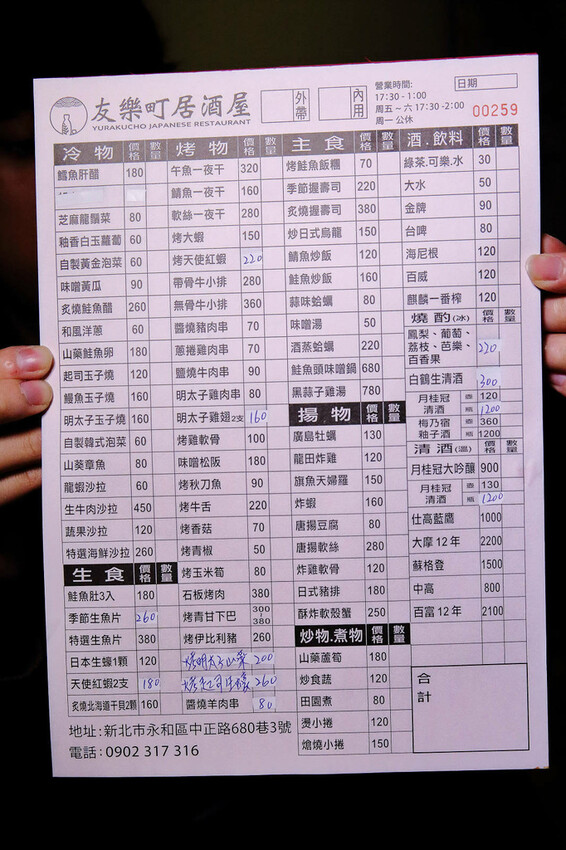 友樂町居酒屋
YURAKUCHO JAPANESE RESTAURANT
外帶
內用
營業時間:
17:30 - 1:00
周五 ~ 六 17:30 -2:00
周一公休
日期
00259
冷物 價格 數量
鱈魚肝醋 180
芝麻龍鬚菜 80
釉香白玉蘿蔔 60
自製黃金泡菜 60
味噌黃瓜 90
炙燒鮭魚醋 260
和風洋蔥 60
山藥鮭魚卵 180
起司玉子燒 120
鰻魚玉子燒 160
明太子玉子燒 160
自製韓式泡菜 60
山葵章魚 80
龍蝦沙拉 60
生牛肉沙拉 450
蔬果沙拉 120
特選海鮮沙拉 260
生食 價格 數量
鮭魚肚3入 180
季節生魚片 260
特選生魚片 380
日本生蠔1顆 120
天使紅蝦2支 180
炙燒北海道干貝2顆 160
烤物 價格 數量
午魚一夜干 320
鯖魚一夜干 160
軟絲一夜干 280
烤大蝦 150
烤天使紅蝦 220
帶骨牛小排 280
無骨牛小排 360
醬燒豬肉串 70
蔥捲雞肉串 70
鹽燒牛肉串 90
明太子雞肉串 80
明太子雞翅2支 160
烤雞軟骨 100
味噌松阪 180
烤秋刀魚 90
烤牛舌 220
烤香菇 70
烤青椒 50
烤玉米筍 80
石板烤肉 380
烤青甘下巴 300-380
烤伊比利豬 260
烤明太子山藥 200
260
醬燒羊肉串 80
主食 價格 數量
烤鮭魚飯糰 70
季節握壽司 220
炙燒握壽司 380
炒日式烏龍 150
鯖魚炒飯 120
鮭魚炒飯 160
蒜味蛤蠣 80
味噌湯 50
酒蒸蛤蠣 220
鮭魚頭味噌鍋 680
黑蒜子雞湯 780
揚物 價格 數量
廣島牡蠣 130
龍田炸雞 120
旗魚天婦羅 150
炸蝦 160
唐揚豆腐 80
唐揚軟絲 280
炸雞軟骨 120
日式豬排 180
酥炸軟殼蟹 250
炒物.煮物 價格 數量
山藥蘆筍 180
炒食蔬 120
田園煮 80
燙小捲 120
熗燒小捲 150
酒.飲料 價格 數量
綠茶.可樂.水 30
大水 50
金牌 90
台啤 80
海尼根 120
百威 120
麒麟一番榨 120
燒酌(冰) 價格 數量
鳳梨、葡萄、荔枝、芭樂、百香果 220
白鶴生清酒 300
月桂冠清酒 壺 120
瓶 1200
梅乃宿釉子酒 壺 360
瓶 1200
清酒(溫) 價格 數量
月桂冠大吟釀 900
月桂冠清酒 壺 130
瓶 1200
仕高藍鷹 1000
大摩12年 2200
蘇格登 1500
中高 800
百富12年 2100
合計
地址:新北市永和區中正路680巷3號
電話:0902 317 316